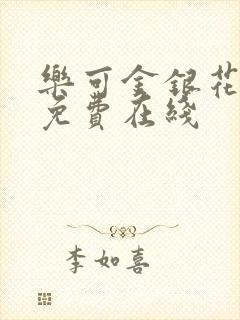 樂可金銀花
免費在綫
李如喜